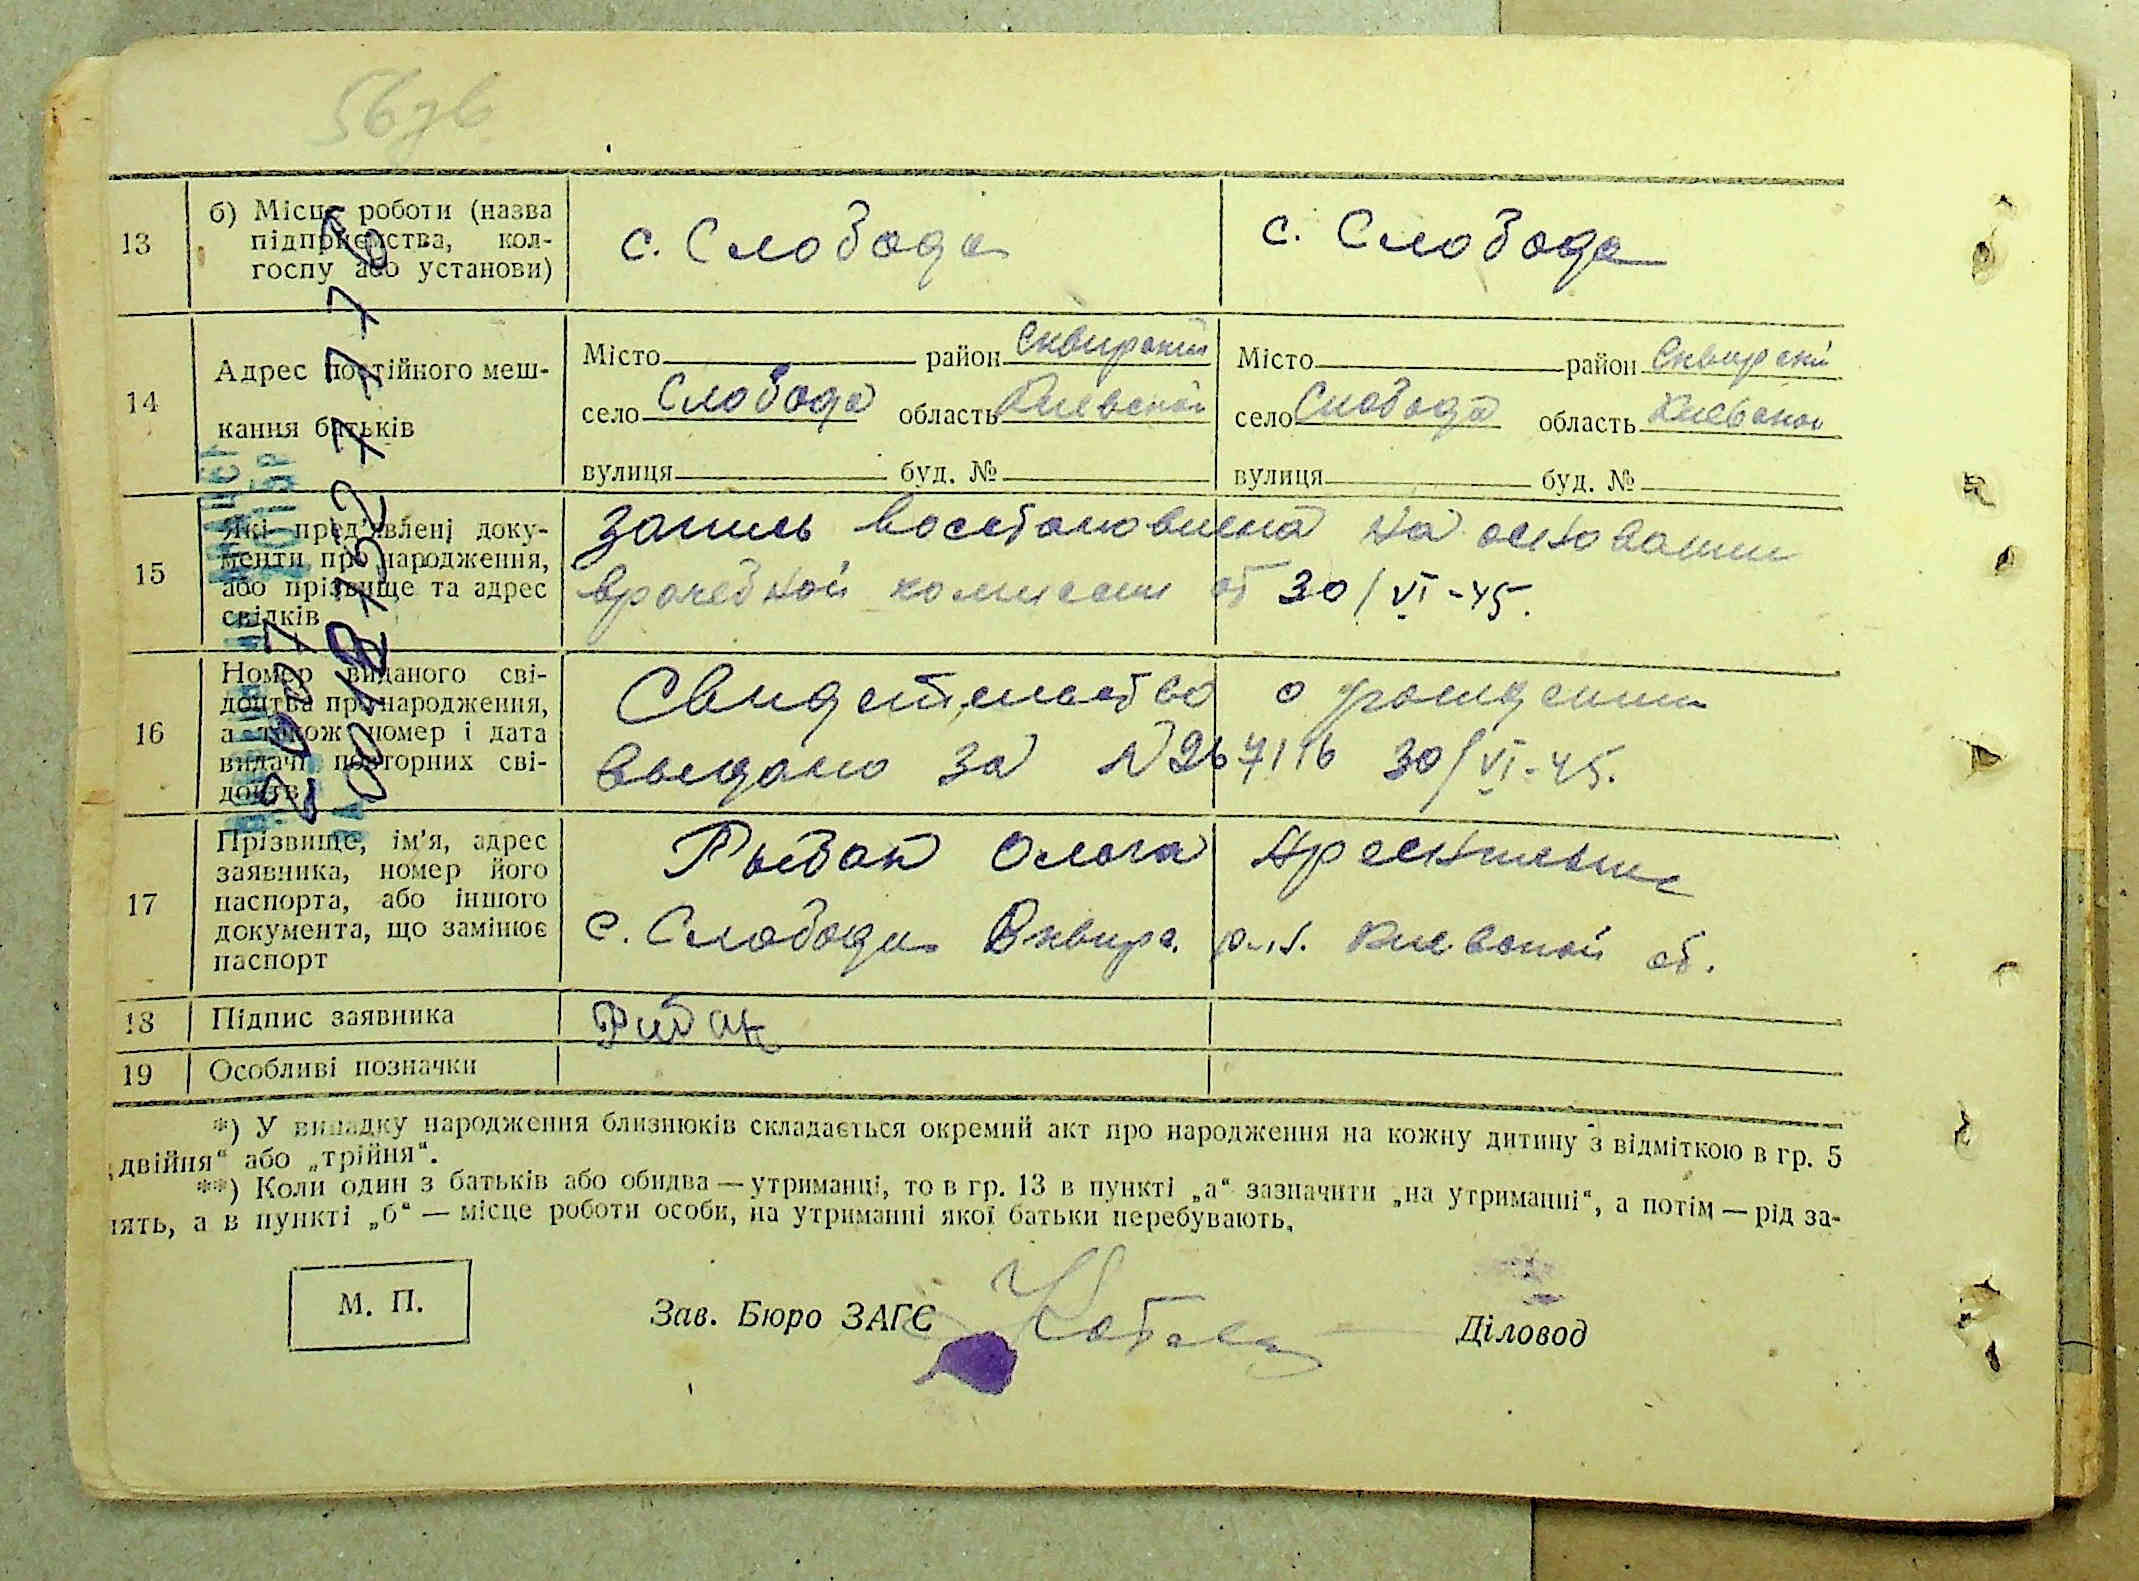 13
б) Місце роботи (назва
підприємства, кол-
госпу або установи)
с. Слобода
с. Слобода
14
Адрес постійного меш-
кання батьків
Місто район Сквирский
село Слобода область Киевской
вулиця буд. №
Місто район Сквирский
село Слобода область Киевской
вулиця буд. №
15
Які пред'явлені доку-
менти про народження,
або прізвище та адрес
свідків
Запись восстановлена на основании
врачебной комиссии от 30/VI-45.
16
Номер виданого сві-
доцтва про народження,
а також номер і дата
видачі повторних сві-
доцтв
Свидетельство о рождении
выдано за №267116 30/VI-45.
17
Прізвище, ім'я, адрес
заявника, номер його
паспорта, або іншого
документа, що замінює
паспорт
Рыбак Ольга
с. Слобода Сквирс. р-н. Киевской об.
18
Підпис заявника
Рибак
19
Особливі позначки
*) У випадку народження близнюків складається окремий акт про народження на кожну дитину з відміткою в гр. 5
„двійня“ або „трійня“.
**) Коли один з батьків або обидва — утриманці, то в гр. 13 в пункті „а“ зазначити „на утриманні“, а потім — рід за-
нять, а в пункті „б“ — місце роботи особи, на утриманні якої батьки перебувають.
М. П.
Зав. Бюро ЗАГС
Діловод